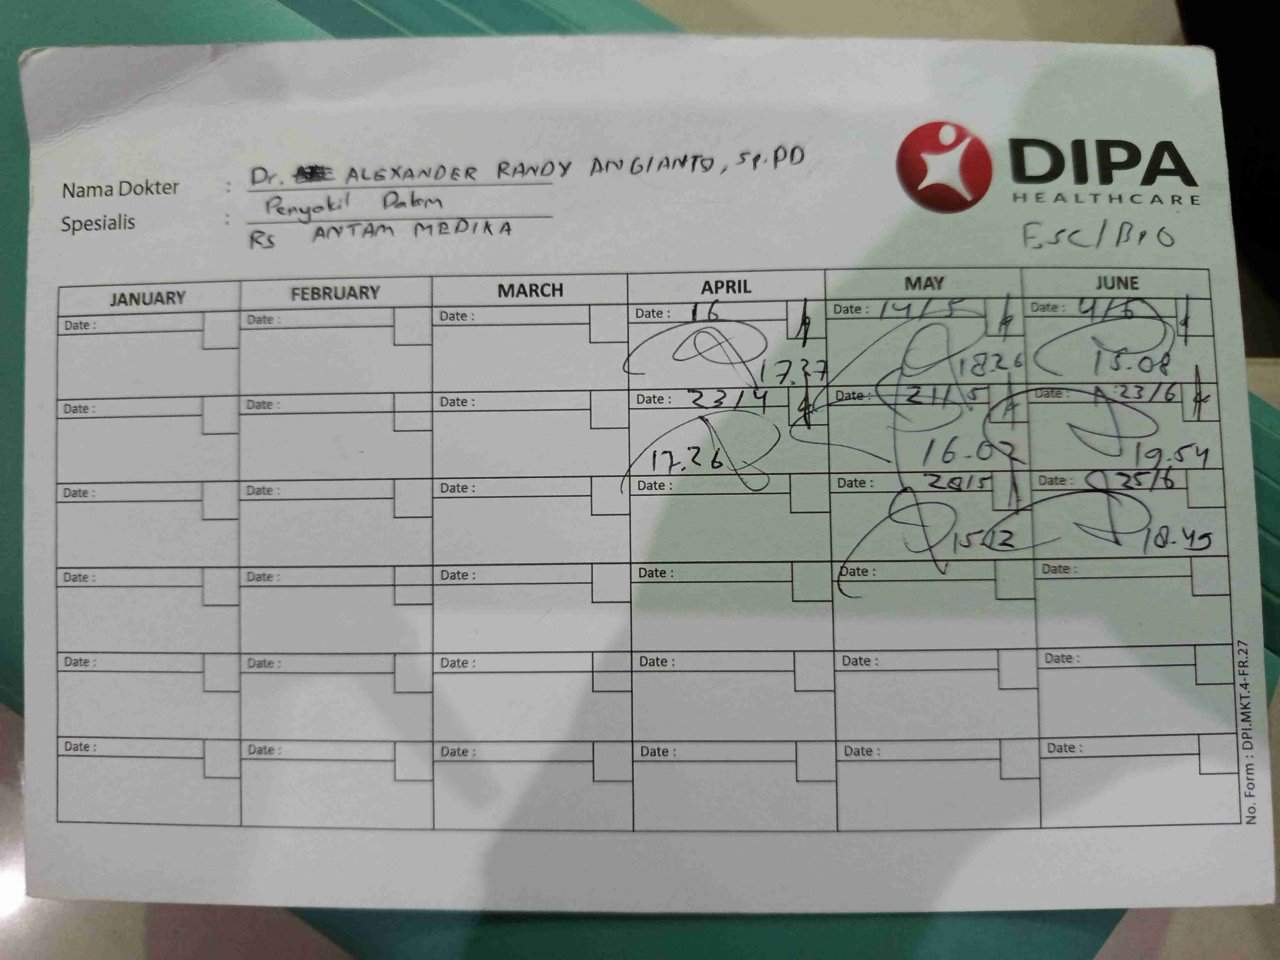 DIPA
HEALTHCARE
Nama Dokter : Dr. ALEXANDER RANDY ANGIANTO, Sp.PD
Spesialis : Penyakil Dalam
RS ANTAM MEDIKA
JANUARY FEBRUARY MARCH APRIL MAY JUNE
Date : Date : Date : Date : 16 Date : 14/5 Date : 4/6
17.37 18.26 15.08
Date : Date : Date : Date : 23/4 Date : 21/5 Date : 23/6
17.26 16.02 19.54
Date : Date : Date : Date : Date : Date : 25/6
15.12 18.45
Date : Date : Date : Date : Date : Date :
Date : Date : Date : Date : Date : Date :
Date : Date : Date : Date : Date : Date :
No. Form : DPI.MKT.4-FR.27